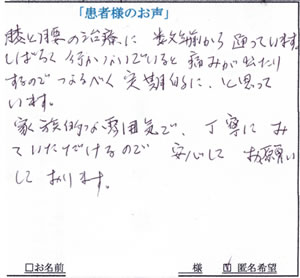 「患者様のお声」
膝と腰の治療に 数年前から通っています。
しばらく行かないでいると痛みが出たり
するのでなるべく定期的に、と思って
います。
家族的な雰囲気で、丁寧にみ
ていただけるので 安心してお願い
しております。
□お名前 様 ☑匿名希望